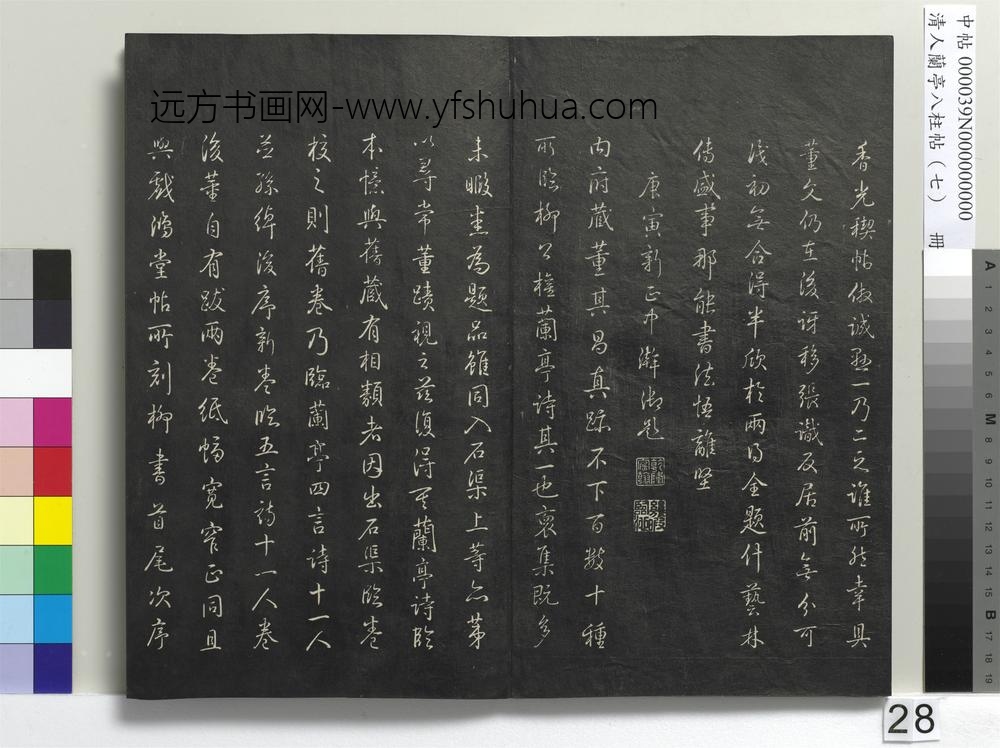 香光禊帖俶诚懸一乃二之誰所然幸具
董久仍在後訝移張識及居前無分可
淺初無合得半欣於兩日全題什藝林
傳盛事那能書法悟離堅
庚寅新正中澣御題
內府藏董其昌真跡不下百數十種
所臨柳公權蘭亭詩其一也裒集既多
未暇悉為題品雖同入石渠上等亦第
以尋常董蹟視之茲復得其蘭亭詩臨
本憶與舊藏有相類者因出石渠臨卷
校之則舊卷乃臨蘭亭四言詩十一人
並孫綽後序新卷臨五言詩十一人卷
後董自有跋兩卷紙幅寬窄正同且
與戲鴻堂帖所刻柳書首尾次序
远方书画网-www.yfshuhua.com
中帖 000039N000000000
清人蘭亭八柱帖（七） 冊
28
A 1 2 3 4 5 6 M 8 9 10 11 12 13 14 15 B 17 18 19